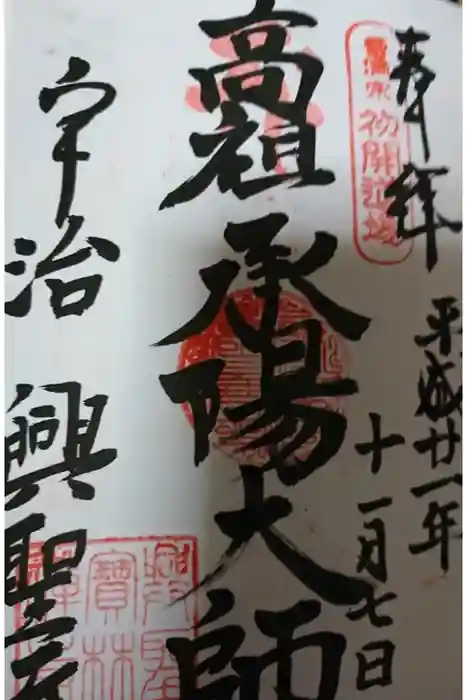 奉拝
平成廿一年
十一月七日
初開道場
高祖承陽大師
宇治 興聖寺